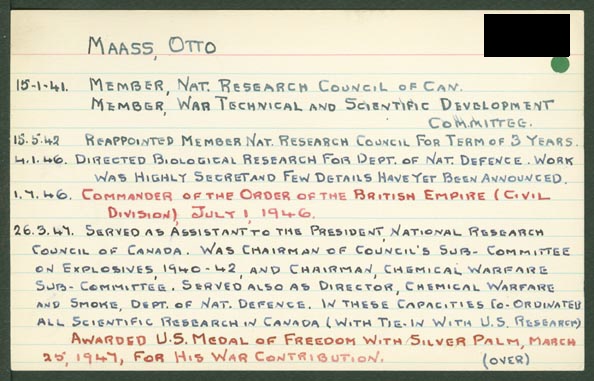 MAASS, OTTO
15-1-41. MEMBER, NAT. RESEARCH COUNCIL OF CAN.
MEMBER, WAR TECHNICAL AND SCIENTIFIC DEVELOPMENT
COMMITTEE.
15.5.42 REAPPOINTED MEMBER NAT. RESEARCH COUNCIL FOR TERM OF 3 YEARS.
4.1.46. DIRECTED BIOLOGICAL RESEARCH FOR DEPT. OF NAT. DEFENCE. WORK
WAS HIGHLY SECRET AND FEW DETAILS HAVE YET BEEN ANNOUNCED.
1.7.46. COMMANDER OF THE ORDER OF THE BRITISH EMPIRE (CIVIL
DIVISION), JULY 1, 1946.
26.3.47. SERVED AS ASSISTANT TO THE PRESIDENT, NATIONAL RESEARCH
COUNCIL OF CANADA. WAS CHAIRMAN OF COUNCIL'S SUB-COMMITTEE
ON EXPLOSIVES, 1940-42, AND CHAIRMAN, CHEMICAL WARFARE
SUB-COMMITTEE. SERVED ALSO AS DIRECTOR, CHEMICAL WARFARE
AND SMOKE, DEPT. OF NAT. DEFENCE. IN THESE CAPACITIES CO-ORDINATED
ALL SCIENTIFIC RESEARCH IN CANADA (WITH TIE-IN WITH U.S. RESEARCH)
AWARDED U.S. MEDAL OF FREEDOM WITH SILVER PALM, MARCH
25, 1947, FOR HIS WAR CONTRIBUTION. (OVER)